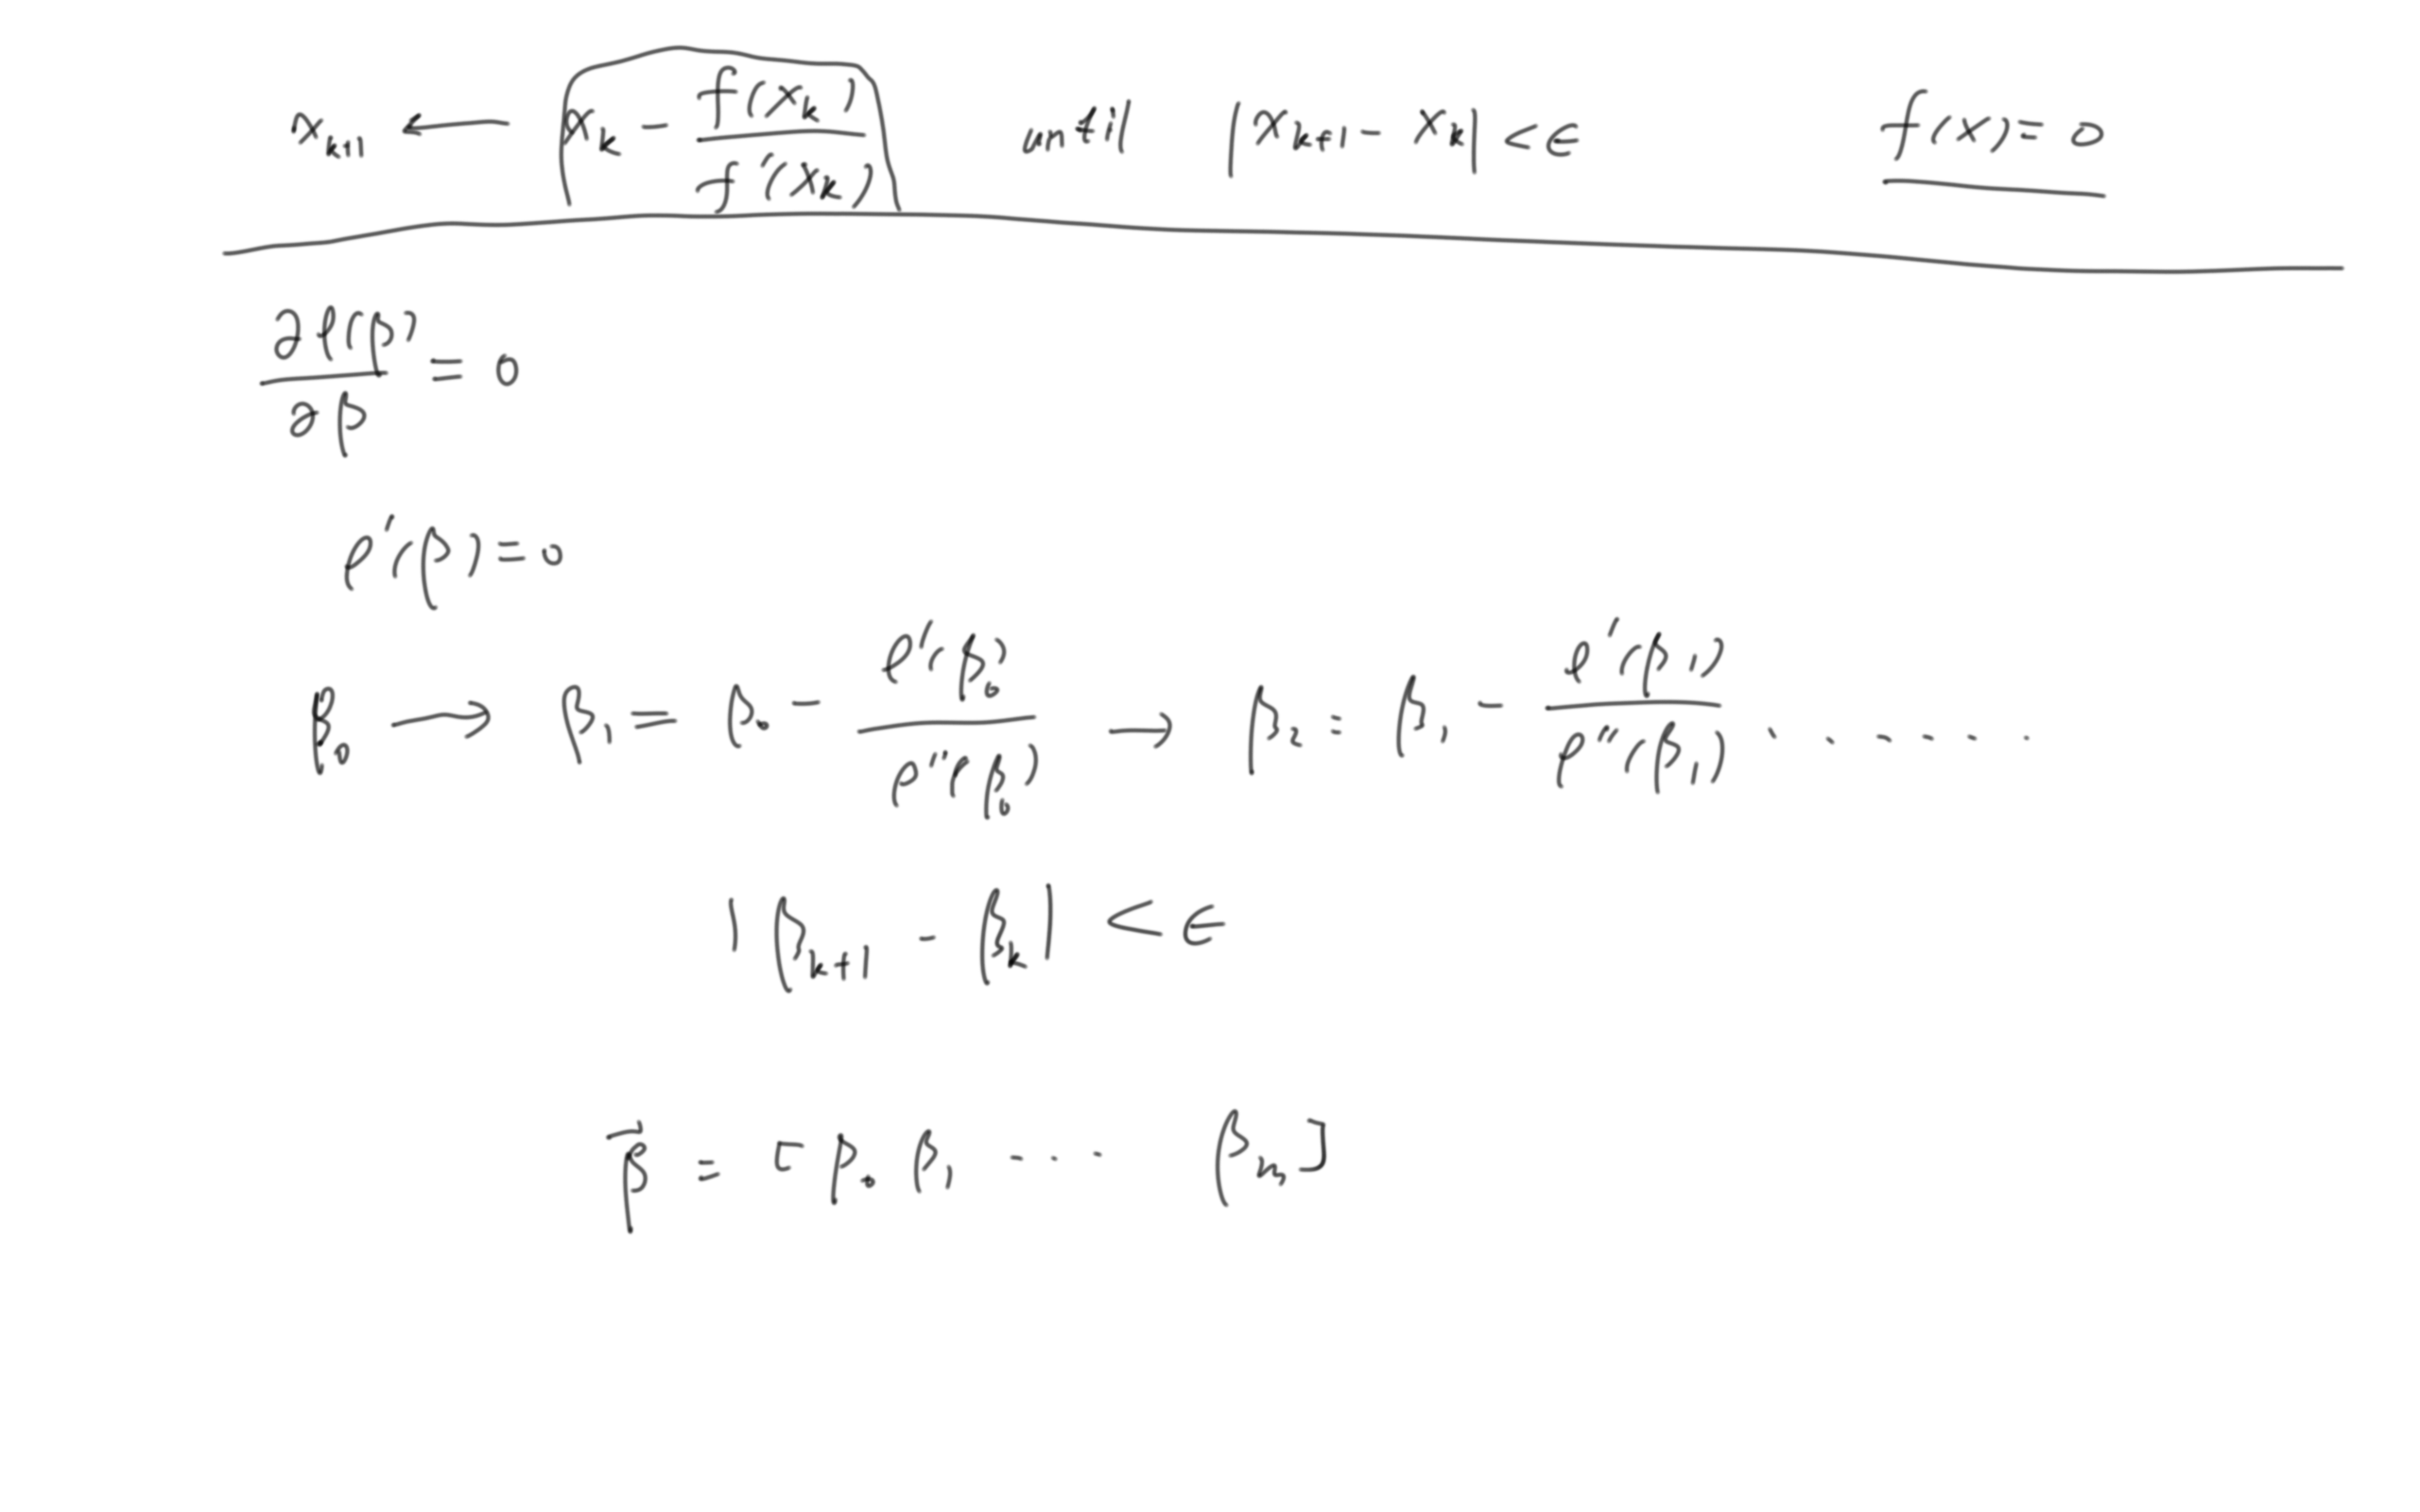 x_{k+1} ← x_k - f(x_k) / f'(x_k) until |x_{k+1} - x_k| < ϵ f(x) = 0
∂ℓ(β) / ∂β = 0
ℓ'(β) = 0
β_0 → β_1 = β_0 - ℓ'(β_0) / ℓ''(β_0) → β_2 = β_1 - ℓ'(β_1) / ℓ''(β_1) . . . . . .
|β_{k+1} - β_k| < ϵ
β⃗ = [β_0 β_1 ... β_m]